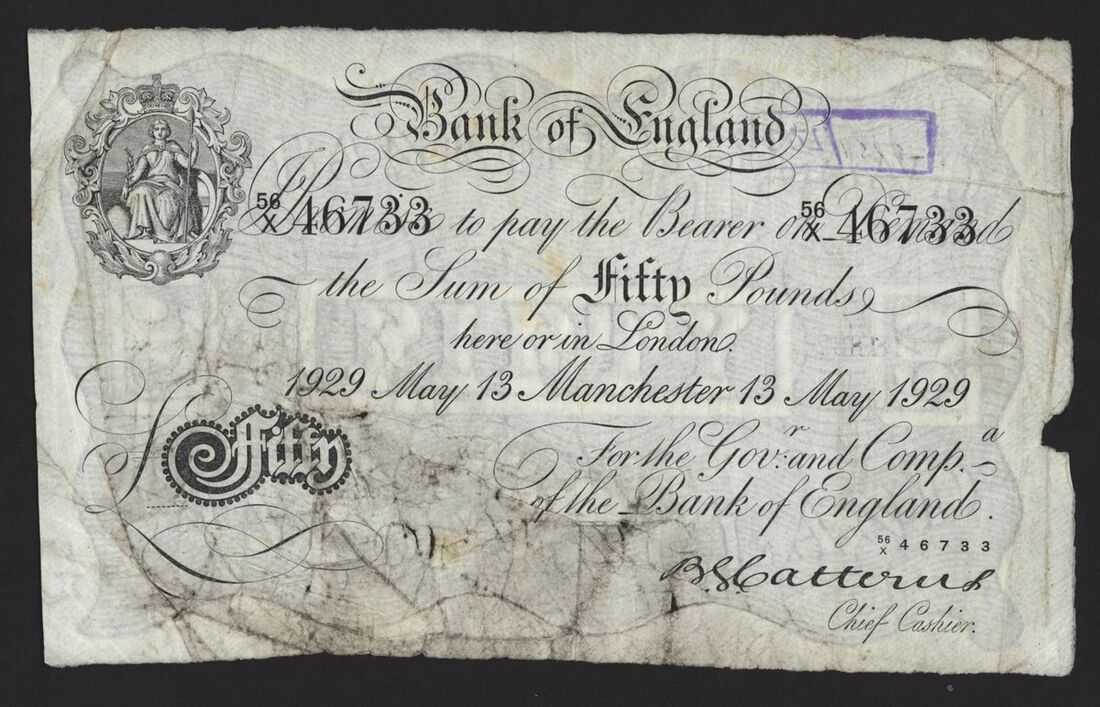 Bank of England
56/X 46733 56/X 46733
I Promise to pay the Bearer on Demand
the Sum of Fifty Pounds
here or in London.
1929 May 13 Manchester 13 May 1929
£ Fifty
For the Govr. and Compa.
of the Bank of England.
56/X 46733
B G Catterns
Chief Cashier.